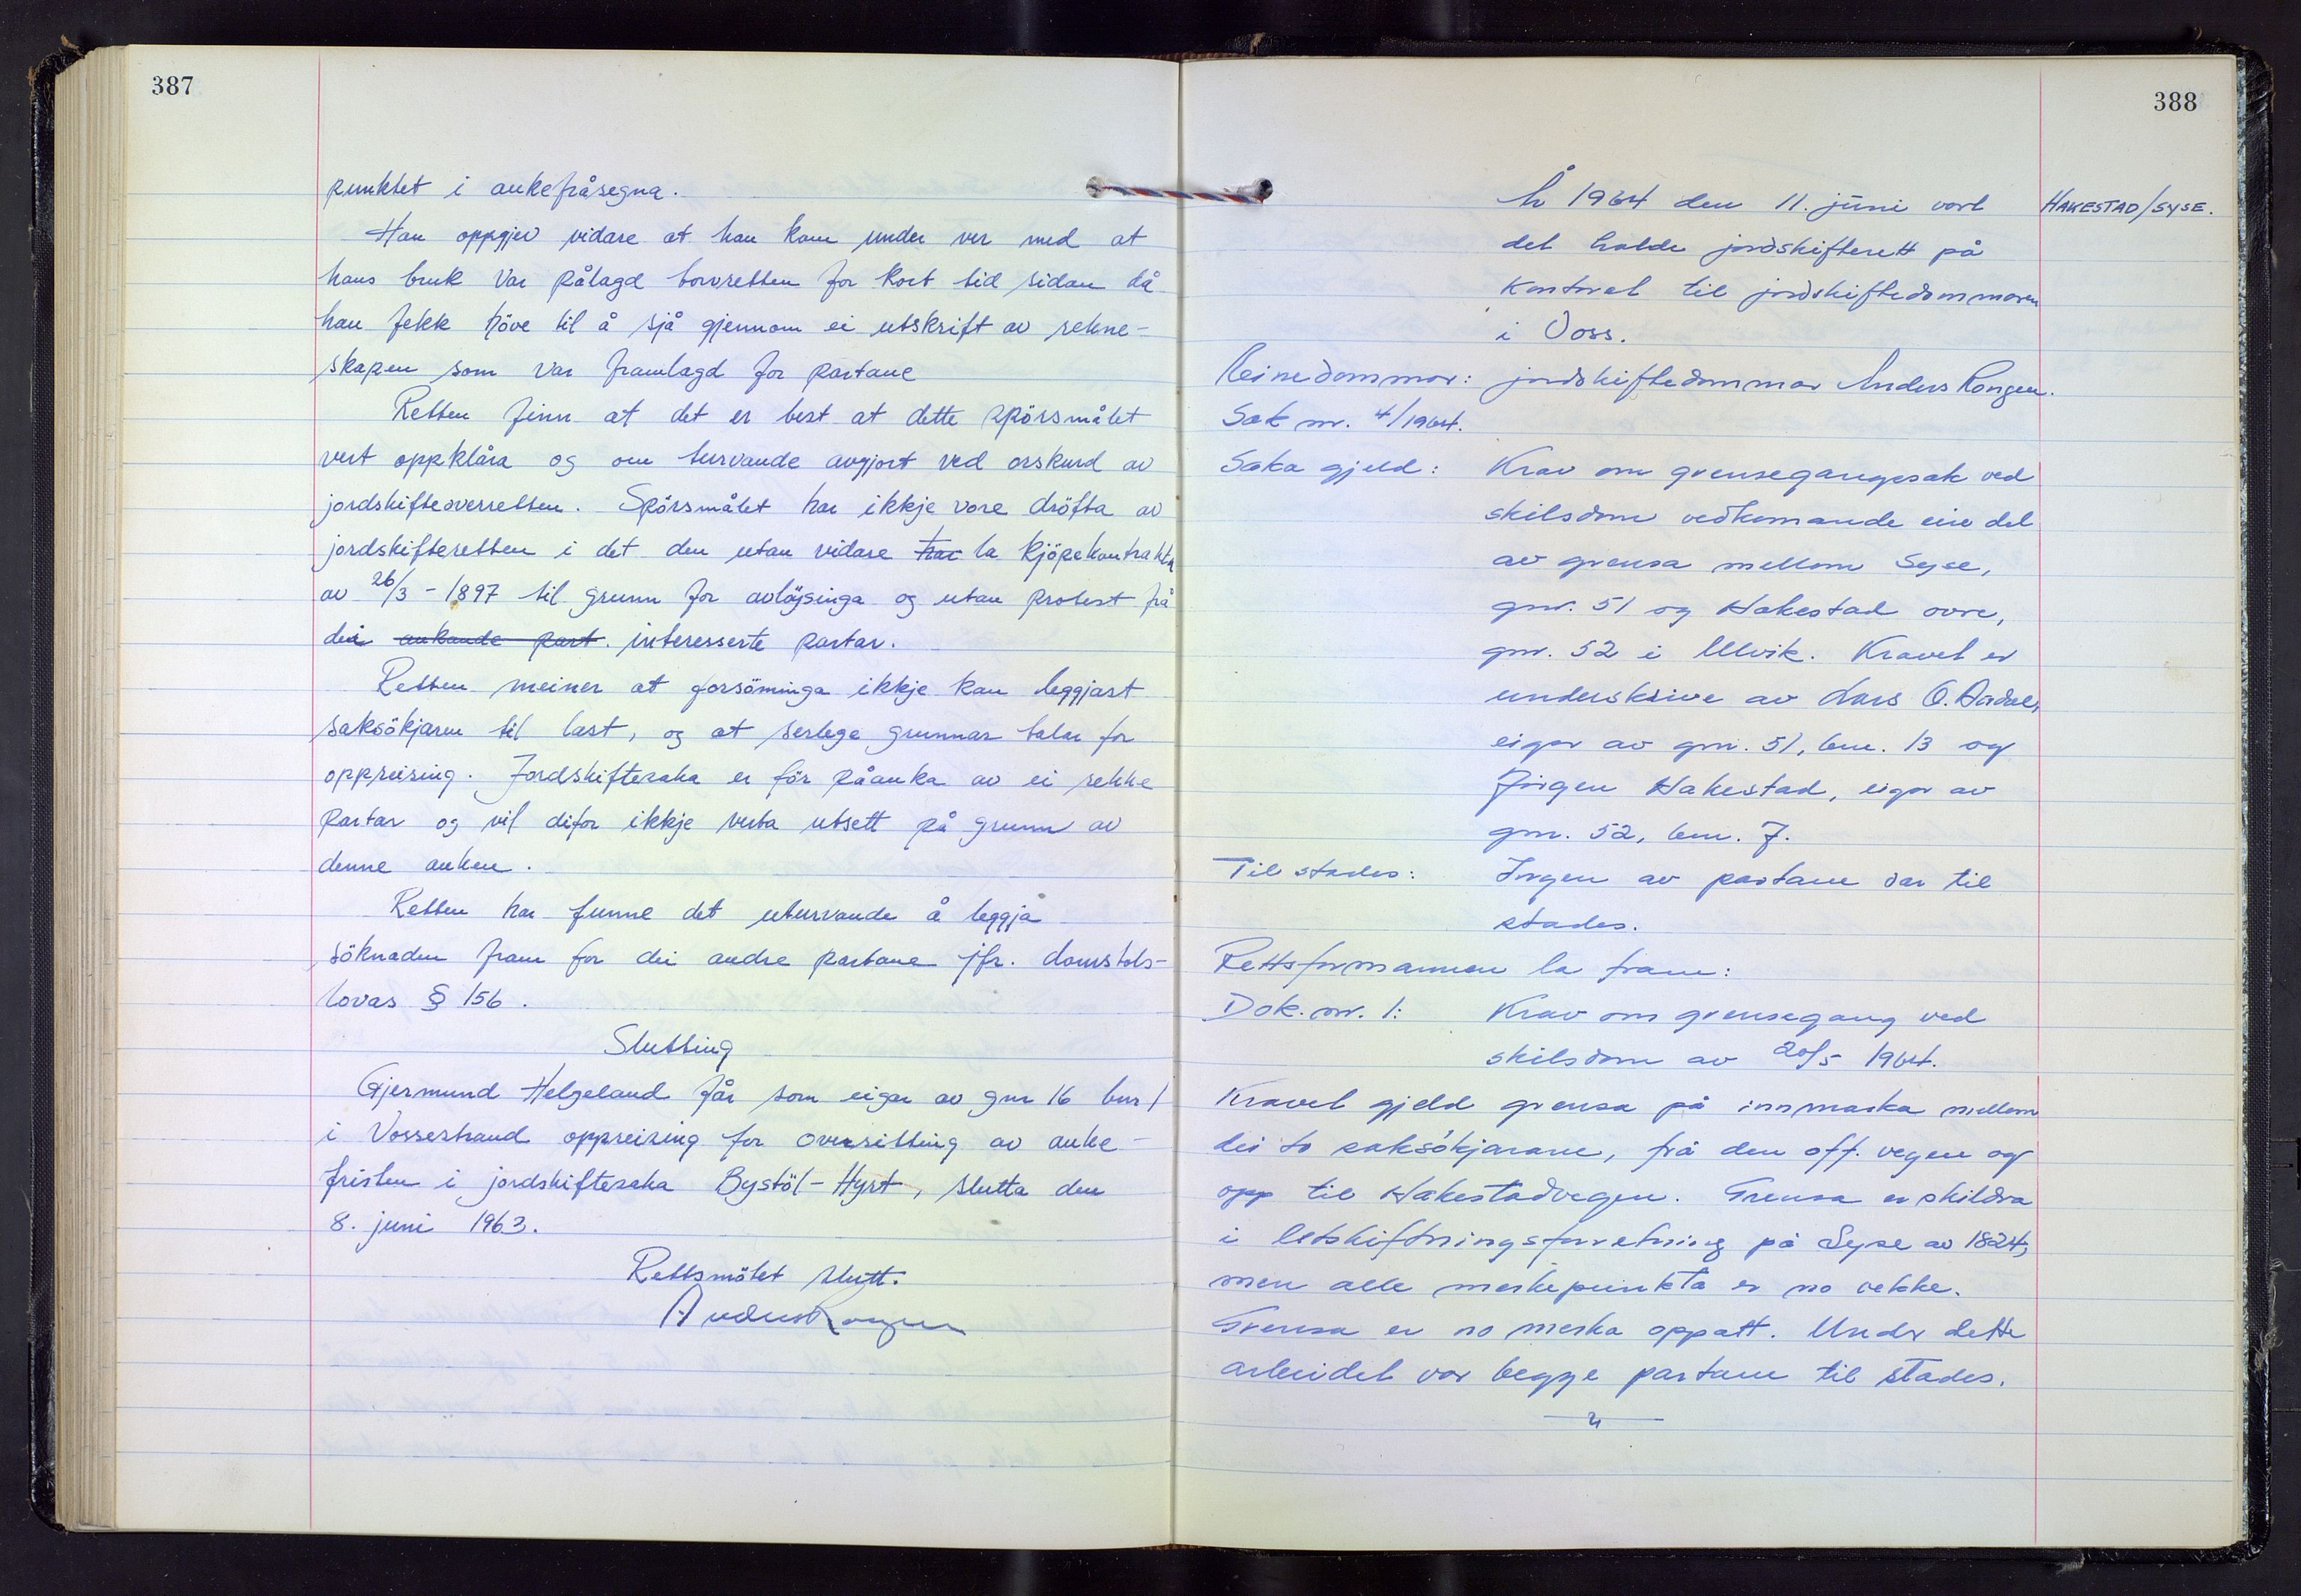 387
punktet i ankefråsegna.
Han oppgjev vidare at han kom under ver med at
hans bruk var pålagd torvretten for kort tid sidan då
han fekk höve til å sjå gjennom ei utskrift av rekne-
skapen som var framlagd for partane
Retten finn at det er best at dette spörsmålet
vert oppklåra og om turvande avgjort ved orskurd av
jordskifteoverretten. Spörsmålet har ikkje vore dröfta av
jordskifteretten i det den utan vidare har la kjöpekontrakten
av 26/3 - 1897 til grunn for avlöysinga og utan protest frå
dei ankande part. interesserte partar.
Retten meiner at forsöminga ikkje kan leggjast
saksökjaren til last, og at serlege grunnar talar for
oppreising. Jordskiftesaka er för påanka av ei rekke
partar og vil difor ikkje verta utsett på grunn av
denne anken.
Retten har funne det uturvande å leggja
söknaden fram for dei andre partane jfr. domstols-
lovas § 156.
Slutting
Gjermund Helgeland får som eigar av gnr 16 bnr 1
i Vossestrand oppreising for oversitting av anke-
fristen i jordskiftesaka Bystöl - Hyrt, slutta den
8. juni 1963.
Rettsmötet slutt.
Anders Rongen
388
År 1964 den 11. juni vart
HAKESTAD/SYSE.
det halde jordskifterett på
kontoret til jordskiftedommaren
i Voss.
Eine dommar: jordskiftedommar Anders Rongen.
Sak nr. 4/1964.
Saka gjeld: Krav om grensegangssak ved
skilsdom vedkomande ein del
av grensa mellom Syse,
gnr. 51 og Hakestad øvre,
gnr. 52 i Ulvik. Kravet er
underskrive av Lars O.
eigar av gnr. 51, bnr. 13 og
Jörgen Hakestad, eigar av
gnr. 52, bnr. 7.
Til stades: Ingen av partane var til
stades.
Rettsformannen la fram:
Dok. nr. 1: Krav om grensegang ved
skilsdom av 20/5 1964.
Kravet gjeld grensa på innmarka mellom
dei to saksökjarane, frå den off. vegen og
opp til Hakestadvegen. Grensa er skildra
i Utskiftningsforretning på Syse av 1824,
men alle merkepunkta er no vekke.
Grensa er no merka oppatt. Under dette
arbeidet var begge partane til stades.